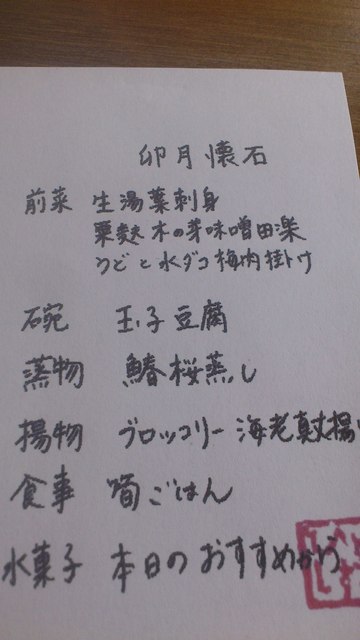 卯月懐石
前菜 生湯葉刺身
粟麩 木の芽味噌田楽
うどと水ダコ梅肉掛け
碗 玉子豆腐
蒸物 鰆桜蒸し
揚物 ブロッコリー 海老真丈揚
食事 筍ごはん
水菓子 本日のおすすめから